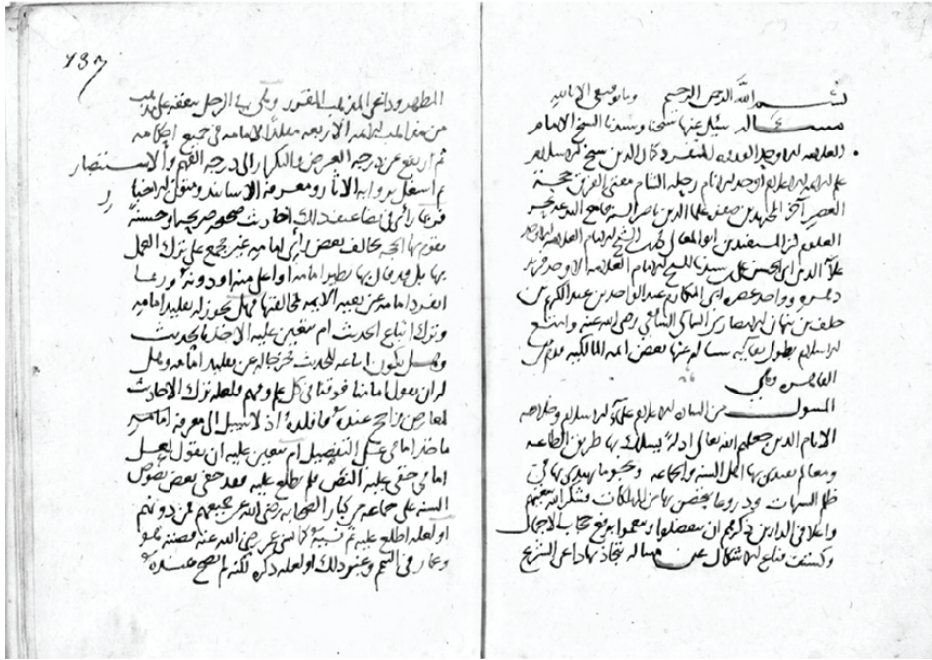 بسم الله الرحمن الرحيم وما توفيقي الا بالله
مسألة سئل عنها شيخنا وسيدنا الشيخ الامام
العلامة الاوحد المتفرد كمال الدين شيخ الاسلام
علم الاعلام اوحد الانام رحلة الشام مفتي الفرق حجة
العصر آخر المجتهدين علما الدين ناصر السنة قامع البدعة
العلوم ابو المعالي محمد ابن الشيخ الامام العلامة
علاء الدين ابي الحسن علي بن سيدنا الشيخ الامام العلامة الاوحد
دهره وواحد عصره ابي المكارم عبد الواحد بن عبد الكريم بن
خلف بن نبهان الانصاري الشافعي رضي الله عنه وامتع
الاسلام بطول بقائه سأله عنها بعض ائمة المالكية
وهي
المسئول من السادة الاعلام علماء الاسلام وخلاصة
الانام الذين جعلهم الله تعالى ادلة يسلك بها طريق الطاعة
ومعالم يقتدى بها اهل السنة والجماعة ونجوما يهتدى بها في
ظلم الشبهات ودروعا يتحصن بها من المهلكات شكر الله سعيهم
واعلا في الدارين ذكرهم ان يتفضلوا وينعموا برفع حجاب الاجمال
وكشف قناع الاشكال عن مسألة يتجاذبها داعي الشرع
137
المطهر وداعي المذهب المقرر وهي بيان الرجل يتفقه على مذهب
من مذاهب الائمة الاربعة مقلدا لامامه في جميع احكامه
ثم ارتفع عن درجة العرض والتكرار الى درجة الفهم والاستبصار
ثم اشتغل برواية الآثار ومعرفة الاسانيد ومتون الاخبار
فرأى في تضاعيف ذلك احاديث صحيحة صريحة او حسنة
تقوم بها الحجة تخالف بعض رأي امامه غير مجمع على ترك العمل
بها بل قد قال بها نظير امامه او اعلى منه او دونه وربما
انفرد امامه عن بقية الائمة بمخالفتها فهل يجوز له تقليد امامه
وترك اتباع الحديث ام يتعين عليه الاخذ بالحديث
وهل يكون اتباعه للحديث خروجا له عن تقليد امامه وهل
له ان يقول امامنا فوقنا في كل علم وفهم فلعله ترك الاحاديث
لمعارض راجح عنده فأقلده اذ لا سبيل الى معرفة
ماخذ امامي على التفصيل ام يتعين عليه ان يقول لعل
امامي خفي عليه النص فلم يطلع عليه فقد خفي بعض نصوص
السنة على جماعة من كبار الصحابة رضي الله عن جميعهم فمن دونهم
او لعله اطلع عليه ثم نسيه كما نسي عمر رضي الله عنه قصته هو
وعمار في التيمم وغير ذلك او لعله ذكره لكنه لم يصح عنده